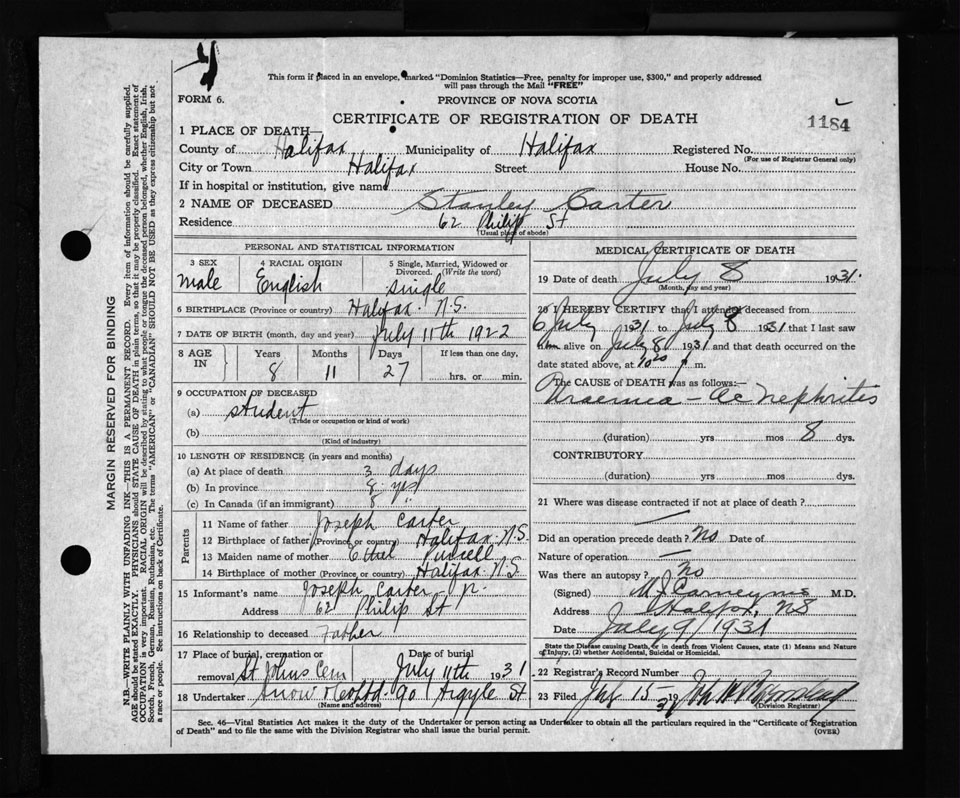 This form if placed in an envelope, marked "Dominion Statistics—Free, penalty for improper use, $300," and properly addressed
will pass through the Mail "FREE"
FORM 6.
PROVINCE OF NOVA SCOTIA
CERTIFICATE OF REGISTRATION OF DEATH
1184
1 PLACE OF DEATH—
County of Halifax Municipality of Halifax Registered No.
(For use of Registrar General only)
City or Town Halifax Street House No.
If in hospital or institution, give name
2 NAME OF DECEASED Stanley Carter
Residence 62 Philip St
(Usual place of abode)
PERSONAL AND STATISTICAL INFORMATION
3 SEX 4 RACIAL ORIGIN 5 Single, Married, Widowed or
Divorced. (Write the word)
male English single
6 BIRTHPLACE (Province or country) Halifax N.S.
7 DATE OF BIRTH (month, day and year) July 11th 1922
8 AGE IN Years Months Days If less than one day,
8 11 27 hrs. or min.
9 OCCUPATION OF DECEASED
(a) student
(Trade or occupation or kind of work)
(b)
(Kind of industry)
10 LENGTH OF RESIDENCE (in years and months)
(a) At place of death 3 days
(b) In province 8 yrs
(c) In Canada (if an immigrant) 8 "
Parents
11 Name of father Joseph Carter
12 Birthplace of father (Province or country) Halifax N.S.
13 Maiden name of mother Ethel Purcell
14 Birthplace of mother (Province or country) Halifax N.S.
15 Informant's name Joseph Carter
Address 62 Philip St
16 Relationship to deceased Father
17 Place of burial, cremation or removal St Johns Cem Date of burial July 11th 1931
18 Undertaker Snow & Co Ltd 90 Argyle St
(Name and address)
MEDICAL CERTIFICATE OF DEATH
19 Date of death July 8 1931.
(Month, day and year)
20 I HEREBY CERTIFY that I attended deceased from
6 July 1931 to July 8 1931 that I last saw
him alive on July 8 1931 and that death occurred on the
date stated above, at m.
The CAUSE of DEATH was as follows:—
Uraemia — Ac Nephritis
(duration) yrs mos 8 dys.
CONTRIBUTORY
(duration) yrs mos dys.
21 Where was disease contracted if not at place of death?
Did an operation precede death? No Date of
Nature of operation
Was there an autopsy? No
(Signed) M.D.
Address Halifax, NS
Date July 9/1931
State the Disease causing Death, or in death from Violent Causes, state (1) Means and Nature
of Injury, (2) whether Accidental, Suicidal or Homicidal.
22 Registrar's Record Number
23 Filed 15 19
(Division Registrar)
Sec. 46—Vital Statistics Act makes it the duty of the Undertaker or person acting as Undertaker to obtain all the particulars required in the "Certificate of Registration
of Death" and to file the same with the Division Registrar who shall issue the burial permit.
(OVER)
MARGIN RESERVED FOR BINDING
N.B.—WRITE PLAINLY WITH UNFADING INK—THIS IS A PERMANENT RECORD. Every item of information should be carefully supplied.
AGE should be stated EXACTLY. PHYSICIANS should STATE CAUSE OF DEATH in plain terms, so that it may be properly classified. Exact statement of
OCCUPATION is very important. RACIAL ORIGIN will be described by stating to what people or tongue the deceased person belonged, whether English, Irish,
Scotch, French, German, Russian, Ruthenian, etc. The terms "AMERICAN" or "CANADIAN" SHOULD NOT BE USED as they express citizenship but not
a race or people. See instructions on back of Certificate.